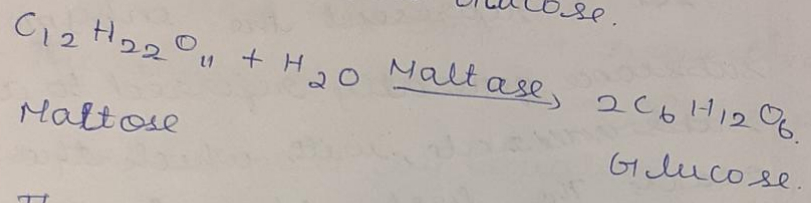 Glucose.
C12 H22 O11 + H2O Maltase → 2C6 H12 O6.
Maltose
Glucose.